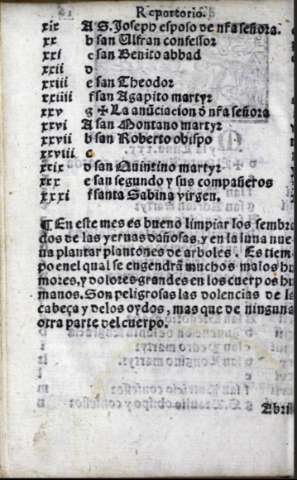 Repertorio.
xix A S. Joseph esposo de nr̃a señora.
xx b san Ulfran confessor
xxi c san Benito abbad
xxii d
xxiii e san Theodor
xxiiii f san Agapito martyr
xxv g ✠ La anũciacion ð nr̃a señora
xxvi A san Montano martyr
xxvii b san Roberto obispo
xxviii c
xxix d san Quintino martyr
xxx e san segundo y sus compañeros
xxxi f santa Sabina virgen.
¶ En este mes es bueno limpiar los sembra
dos de las yeruas dañosas, y en la luna nue
ua plantar plantones de arboles. Es tiem
po en el qual se engendrã muchos malos hu
mores, y dolores grandes en los cuerpos hu
manos. Son peligrosas las dolencias de la
cabeça y de los oydos, mas que de ninguna
otra parte del cuerpo.
Abril